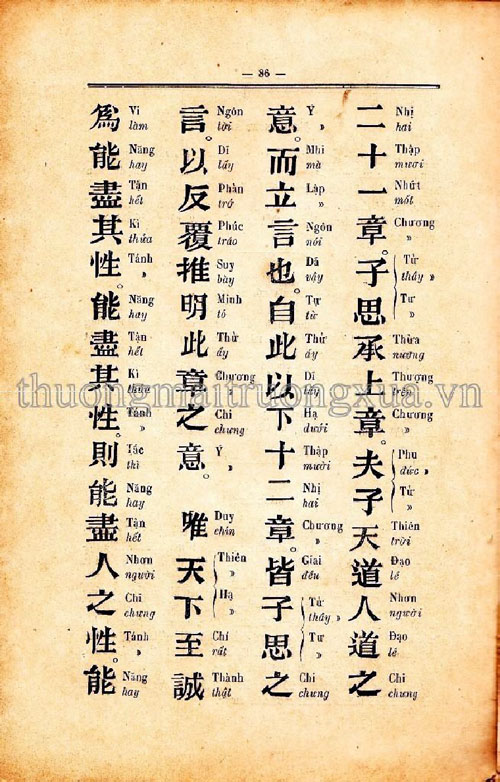 — 86 —
二十一章。子思承上章。夫子天道人道之
Nhị Thập Nhứt Chương Tử Tư Thừa Thượng Chương Phu Tử Thiên Đạo Nhơn Đạo Chi
hai mươi một » thầy » » nương trên » đức » » trời lẽ người lẽ chưng
意。而立言也。自此以下十二章。皆子思之
Ý Nhi Lập Ngôn Dã Tự Thử Dĩ Hạ Thập Nhị Chương Giai Tử Tư Chi
» mà » nói vậy từ ấy lấy dưới mười hai » đều thầy » » chưng
言。以反覆推明此章之意。唯天下至誠
Ngôn Dĩ Phản Phúc Suy Minh Thử Chương Chi Ý Duy Thiên Hạ Chí Thành
lời lấy trở tráo bày tỏ ấy » chưng » chỉn » » rất thật
爲能盡其性。能盡其性。則能盡人之性。能
Vi Năng Tận Kì Tánh Năng Tận Kì Tánh Tắc Năng Tận Nhơn Chi Tánh Năng
làm hay hết thửa » hay hết thửa » thì hay hết người chưng » hay
thuongmaitruongxua.vn